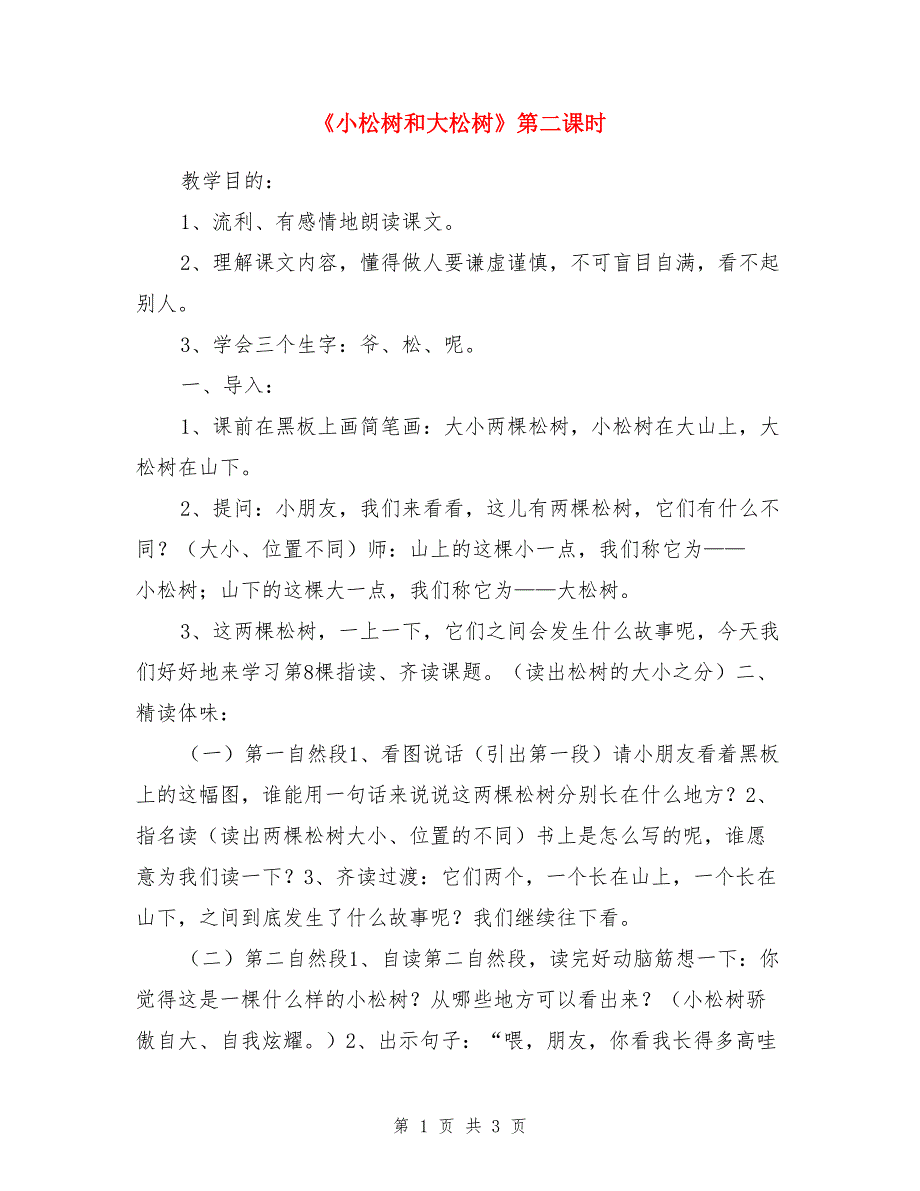 《小松树和大松树》第二课时
教学目的：
1、流利、有感情地朗读课文。
2、理解课文内容，懂得做人要谦虚谨慎，不可盲目自满，看不起
别人。
3、学会三个生字：爷、松、呢。
一、导入：
1、课前在黑板上画简笔画：大小两棵松树，小松树在大山上，大
松树在山下。
2、提问：小朋友，我们来看看，这儿有两棵松树，它们有什么不
同？（大小、位置不同）师：山上的这棵小一点，我们称它为——
小松树；山下的这棵大一点，我们称它为——大松树。
3、这两棵松树，一上一下，它们之间会发生什么故事呢，今天我
们好好地来学习第8棵指读、齐读课题。（读出松树的大小之分）二、
精读体味：
（一）第一自然段1、看图说话（引出第一段）请小朋友看着黑板
上的这幅图，谁能用一句话来说说这两棵松树分别长在什么地方？2、
指名读（读出两棵松树大小、位置的不同）书上是怎么写的呢，谁愿
意为我们读一下？3、齐读过渡：它们两个，一个长在山上，一个长在
山下，之间到底发生了什么故事呢？我们继续往下看。
（二）第二自然段1、自读第二自然段，读完好动脑筋想一下：你
觉得这是一棵什么样的小松树？从哪些地方可以看出来？（小松树骄
傲自大、自我炫耀。）2、出示句子：“喂，朋友，你看我长得多高哇
第 1 页 共 3 页